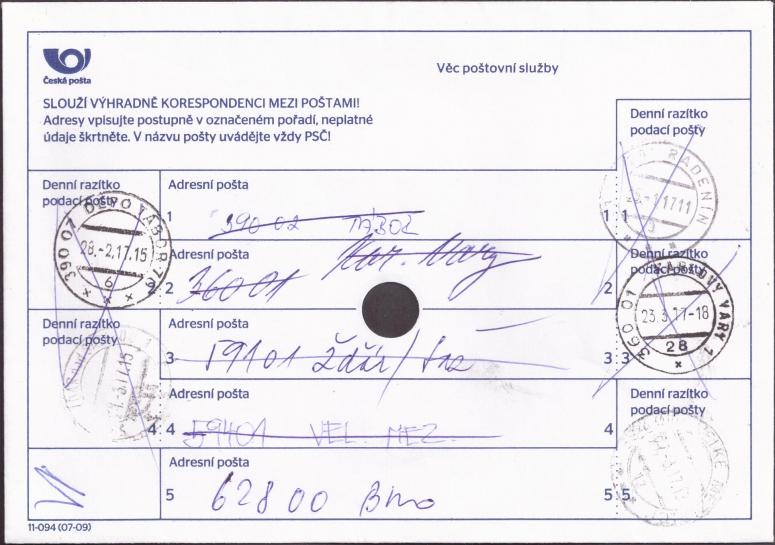 Česká pošta
Věc poštovní služby
SLOUŽÍ VÝHRADNĚ KORESPONDENCI MEZI POŠTAMI!
Adresy vpisujte postupně v označeném pořadí, neplatné
údaje škrtněte. V názvu pošty uvádějte vždy PSČ!
Denní razítko
podací pošty
RADENÍN
Denní razítko
podací pošty
390 01 DEPO TÁBOR 70
28.-2.17.15
6
Adresní pošta
1 390 02 TÁBOR 1
1
Adresní pošta
2 360 01 Kar. Vary 2
2
Denní razítko
podací pošty
360 01 KARLOVY VARY 1
23.3.17-18
28
Denní razítko
podací pošty
Adresní pošta
3 59101 Žďár/Sáz 3
3
Adresní pošta
4 4 59401 VEL. MEZ. 4
Denní razítko
podací pošty
Adresní pošta
5 628 00 Brno 5
5
11-094 (07-09)